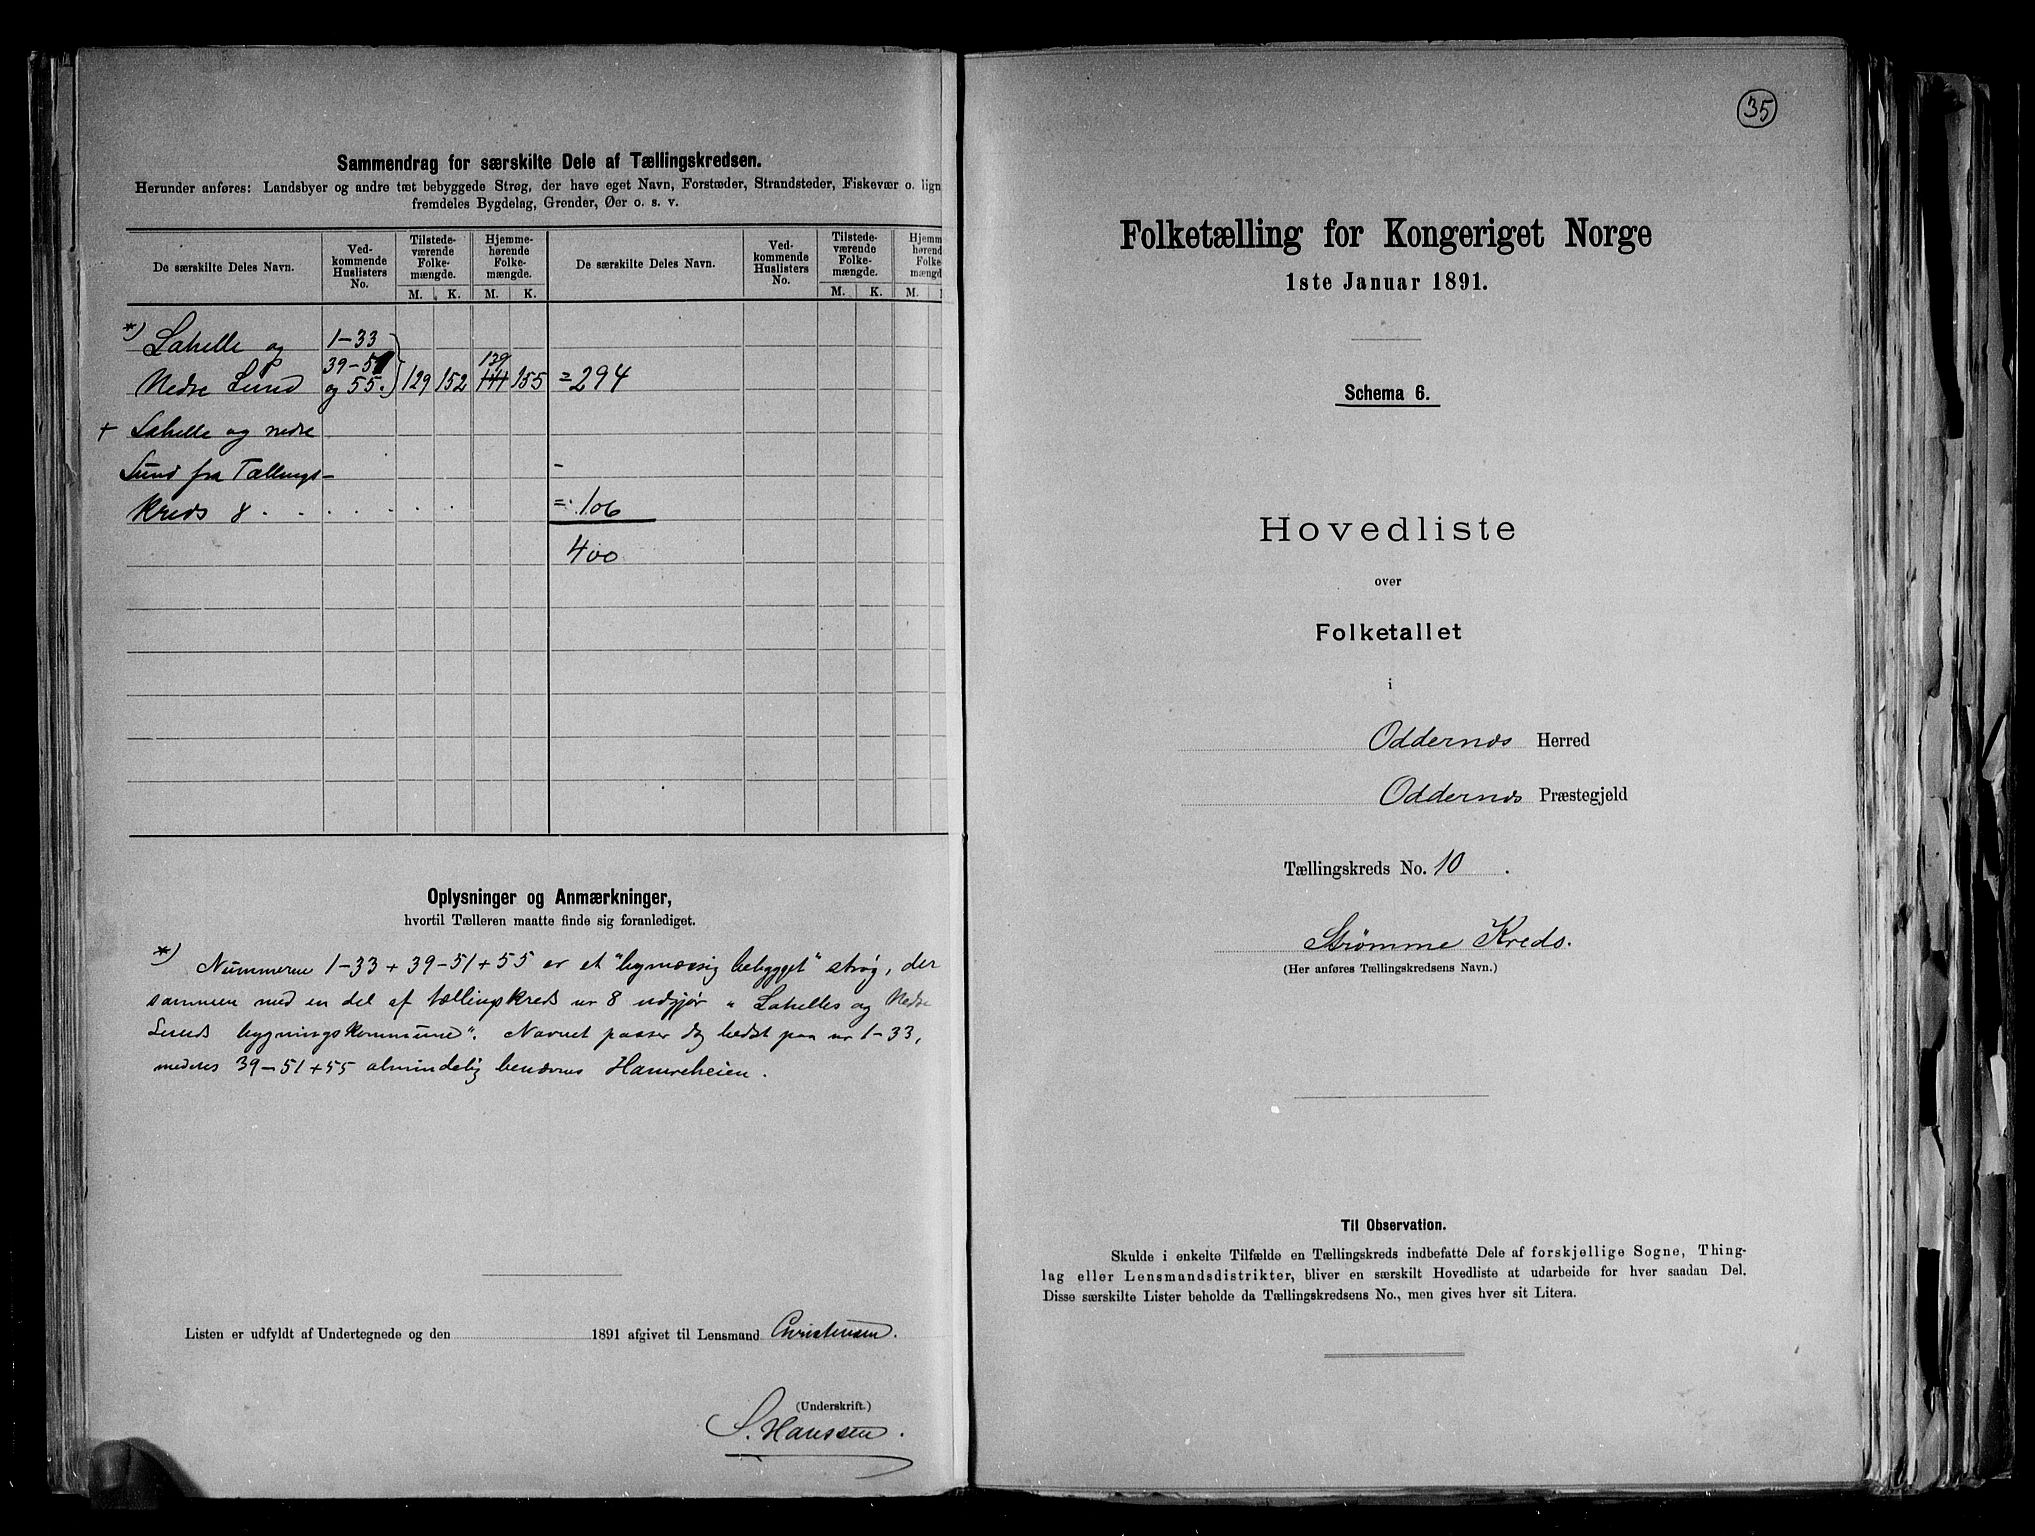 Sammendrag for særskilte Dele af Tællingskredsen.
Herunder anføres: Landsbyer og andre tæt bebyggede Strøg, der have eget Navn, Forstæder, Strandsteder, Fiskevær o. lign
fremdeles Bygdelag, Grender, Øer o. s. v.
De særskilte Deles Navn.
Ved-
kommende
Huslisters
No.
Tilstede-
værende
Folke-
mængde.
Hjemme-
hørende
Folke-
mængde.
De særskilte Deles Navn.
Ved-
kommende
Huslisters
No.
Tilstede-
værende
Folke-
mængde.
Hjemm
hørend
Folke-
mængd
M. K. M. K. M. K. M.
*) Lahelle og 1-33
39-51
139
Nedre Lund og 55. 129 152 141 155 = 294
+ Lahelle og nedre
Lund fra Tællings-
kreds 8 . . . . . . = 106
400
Oplysninger og Anmærkninger,
hvortil Tælleren maatte finde sig foranlediget.
*) Nummerne 1-33 + 39-51 + 55 er et "bymæssig bebygget" strøg, der
sammen med en del af tællingskreds nr 8 udgjør "Lahelles og Nedre
Lunds bygningskommune". Navnet passer dog bedst paa nr 1-33,
medens 39-51+55 almindelig benævnes Hamreheien.
Listen er udfyldt af Undertegnede og den 1891 afgivet til Lensmand Christensen.
(Underskrift.)
S. Hanssen.
35
Folketælling for Kongeriget Norge
1ste Januar 1891.
Schema 6.
Hovedliste
over
Folketallet
i
Oddernes Herred
Oddernes Præstegjeld
Tællingskreds No. 10.
Strømme Kreds.
(Her anføres Tællingskredsens Navn.)
Til Observation.
Skulde i enkelte Tilfælde en Tællingskreds indbefatte Dele af forskjellige Sogne, Thing-
lag eller Lensmandsdistrikter, bliver en særskilt Hovedliste at udarbeide for hver saadan Del.
Disse særskilte Lister beholde da Tællingskredsens No., men gives hver sit Litera.